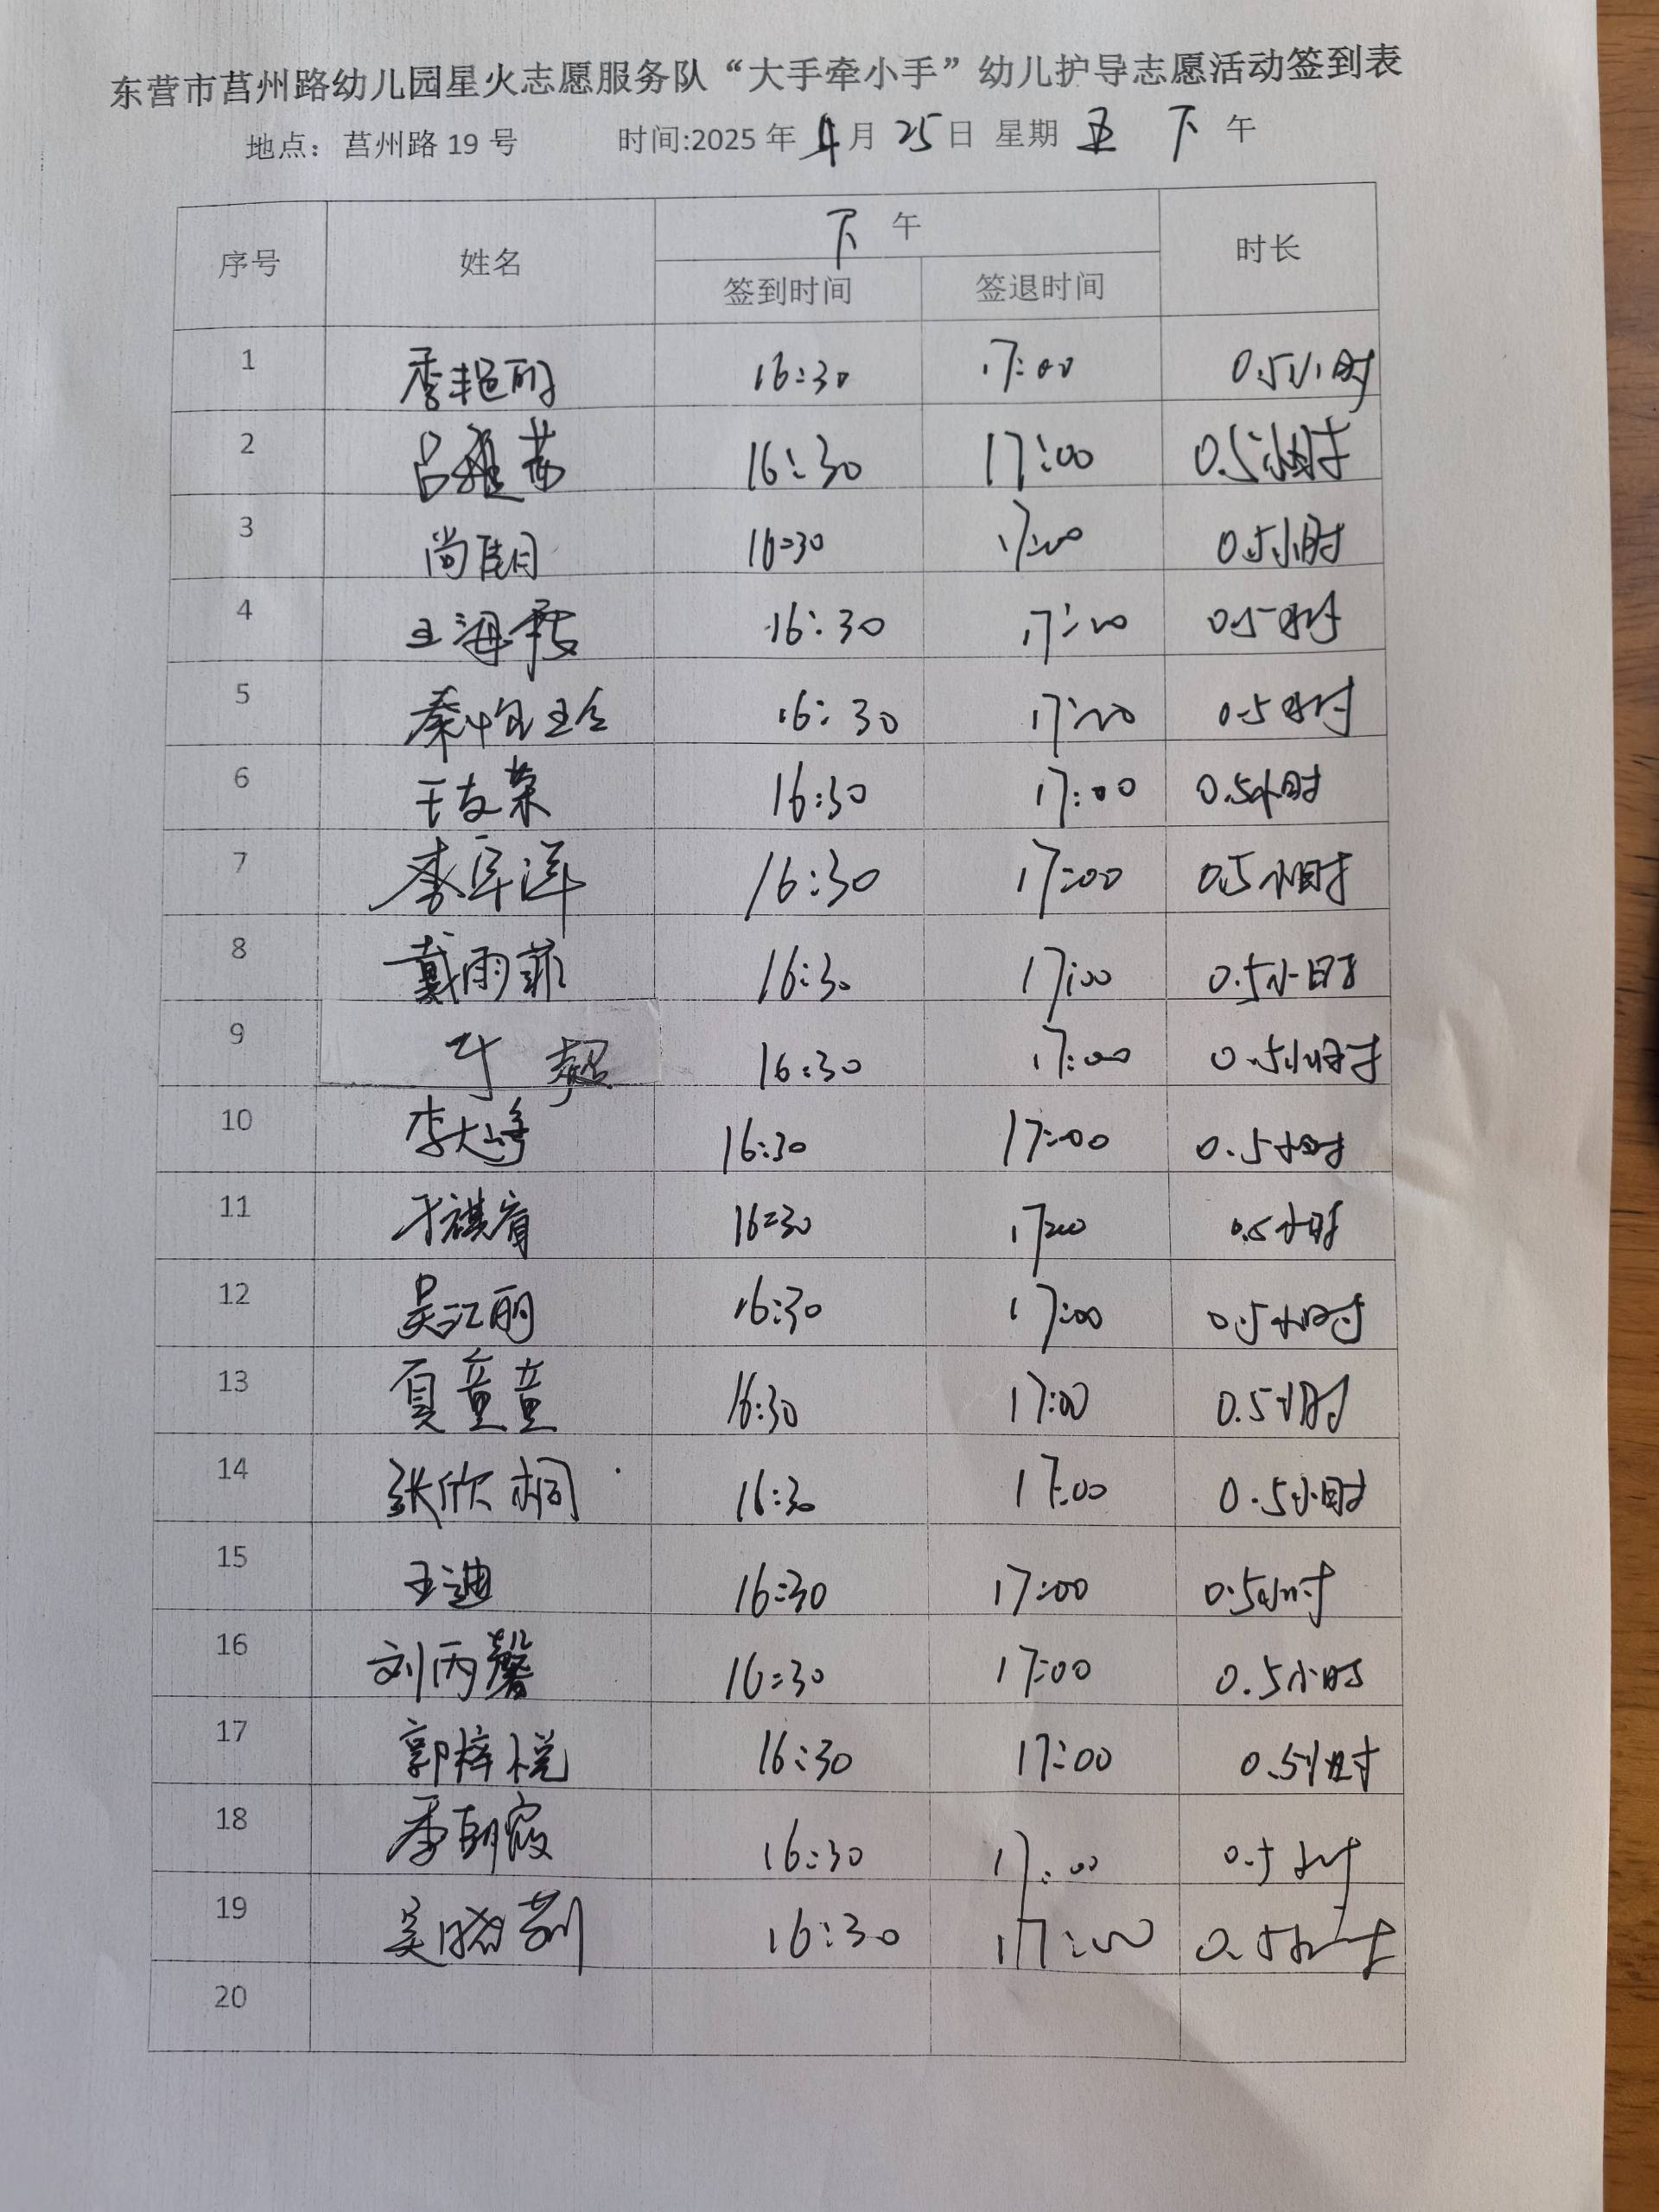 东营市莒州路幼儿园星火志愿服务队“大手牵小手”幼儿护导志愿活动签到表
地点：莒州路 19 号 时间:2025 年 4 月 25 日 星期 五 下 午
序号 姓名 下 午 时长
签到时间 签退时间
1 季艳丽 16:30 17:00 0.5小时
2 吕雅茹 16:30 17:00 0.5小时
3 尚佳月 16:30 17:00 0.5小时
4 王海霞 16:30 17:00 0.5小时
5 秦 16:30 17:00 0.5小时
6 王友荣 16:30 17:00 0.5小时
7 李军洋 16:30 17:00 0.5小时
8 戴雨菲 16:30 17:00 0.5小时
9 超 16:30 17:00 0.5小时
10 李大峰 16:30 17:00 0.5小时
11 16:30 17:00 0.5小时
12 吴江丽 16:30 17:00 0.5小时
13 夏童童 16:30 17:00 0.5小时
14 张欣桐 16:30 17:00 0.5小时
15 王迪 16:30 17:00 0.5小时
16 刘丙馨 16:30 17:00 0.5小时
17 郭梓悦 16:30 17:00 0.5小时
18 季朝霞 16:30 17:00 0.5小时
19 吴晓莉 16:30 17:00 0.5小时
20